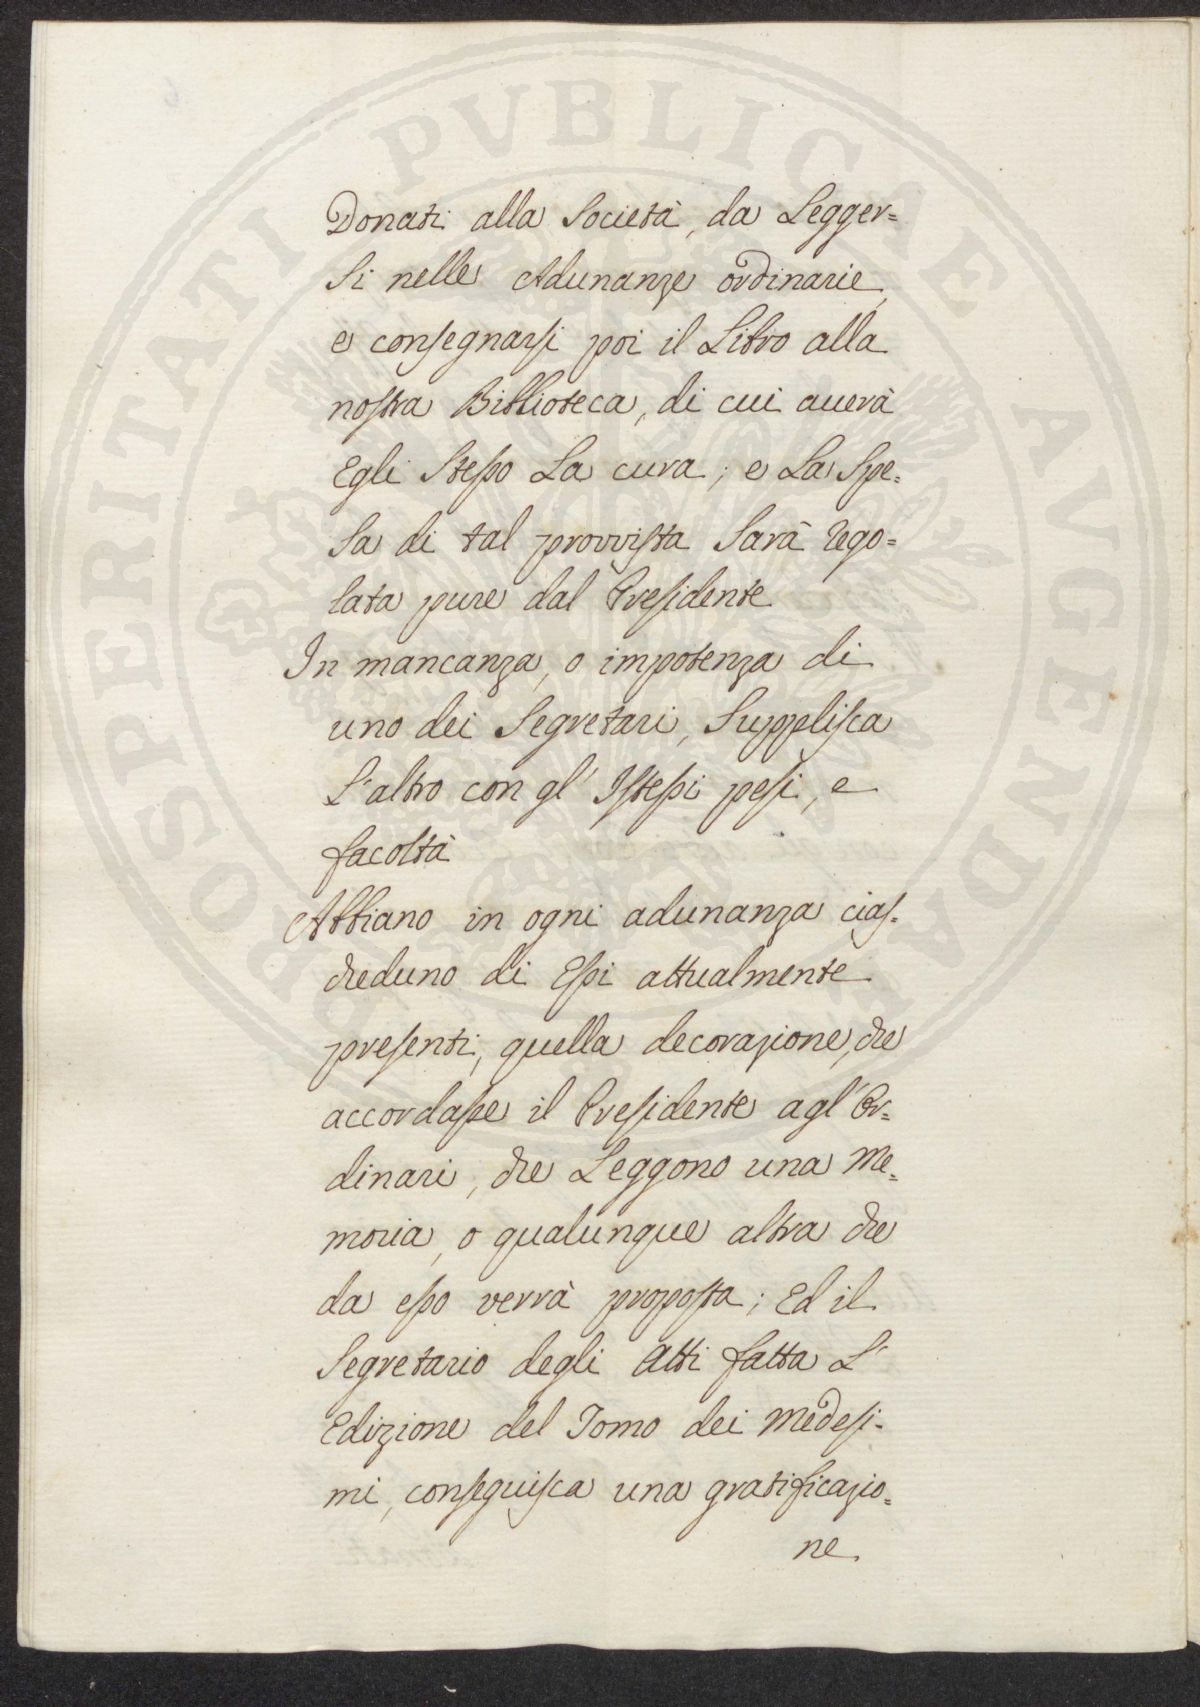 PROSPERITATI PUBLICAE AUGENDAE
Donati alla Società, da Legger=
si nelle Adunanze ordinarie,
e consegnarsi poi il Libro alla
nostra Biblioteca, di cui auerà
Egli Stesso La cura; e La Spe=
sa di tal provvista Sarà rego=
lata pure dal Presidente
In mancanza, o impotenza di
uno dei Segretari, Supplisca
L'altro con gl' Istessi pesi, e
facoltà
Abbiano in ogni adunanza cias=
cheduno di Essi attualmente
presenti, quella decorazione, che
accordasse il Presidente agl' Or=
dinari, che Leggono una Me=
moria, o qualunque altra che
da esso verrà proposta; Ed il
Segretario degli Atti fatta L'
Edizione del Tomo dei Medesi=
mi, conseguisca una gratificazio=
ne